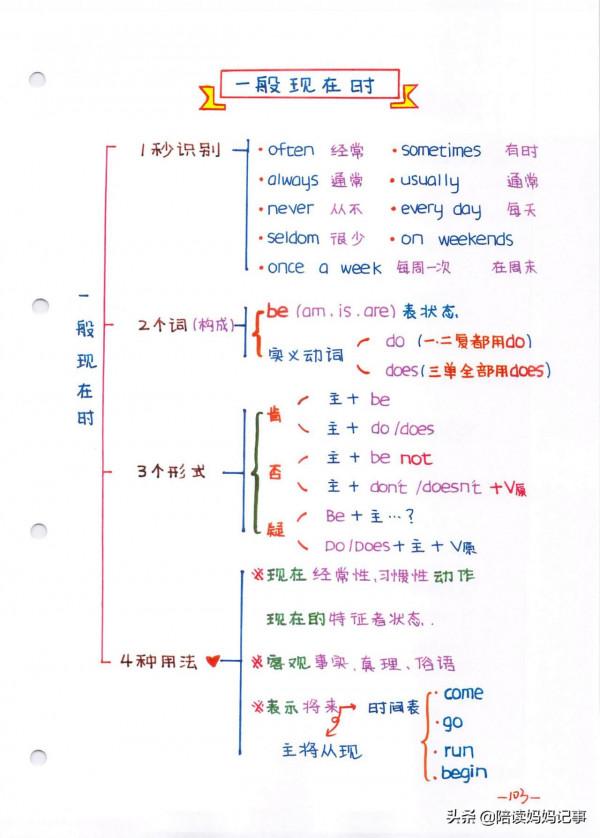 一般现在时
一般现在时
1秒识别
• often 经常 • sometimes 有时
• always 通常 • usually 通常
• never 从不 • every day 每天
• seldom 很少 • on weekends
• once a week 每周一次 在周末
2个词(构成)
be (am. is. are) 表状态.
实义动词
do (一.二复都用do)
does(三单全部用does)
3个形式
肯
主 + be
主 + do/does
否
主 + be not
主 + don't /doesn't +V原
疑
Be + 主…?
Do/Does + 主 + V原
4种用法
※现在经常性、习惯性动作
现在的特征者状态.
※客观事实、真理、俗语
※表示将来 → 时间表
主将从现
• come
• go
• run
• begin
—103—
头条@陪读妈妈记事